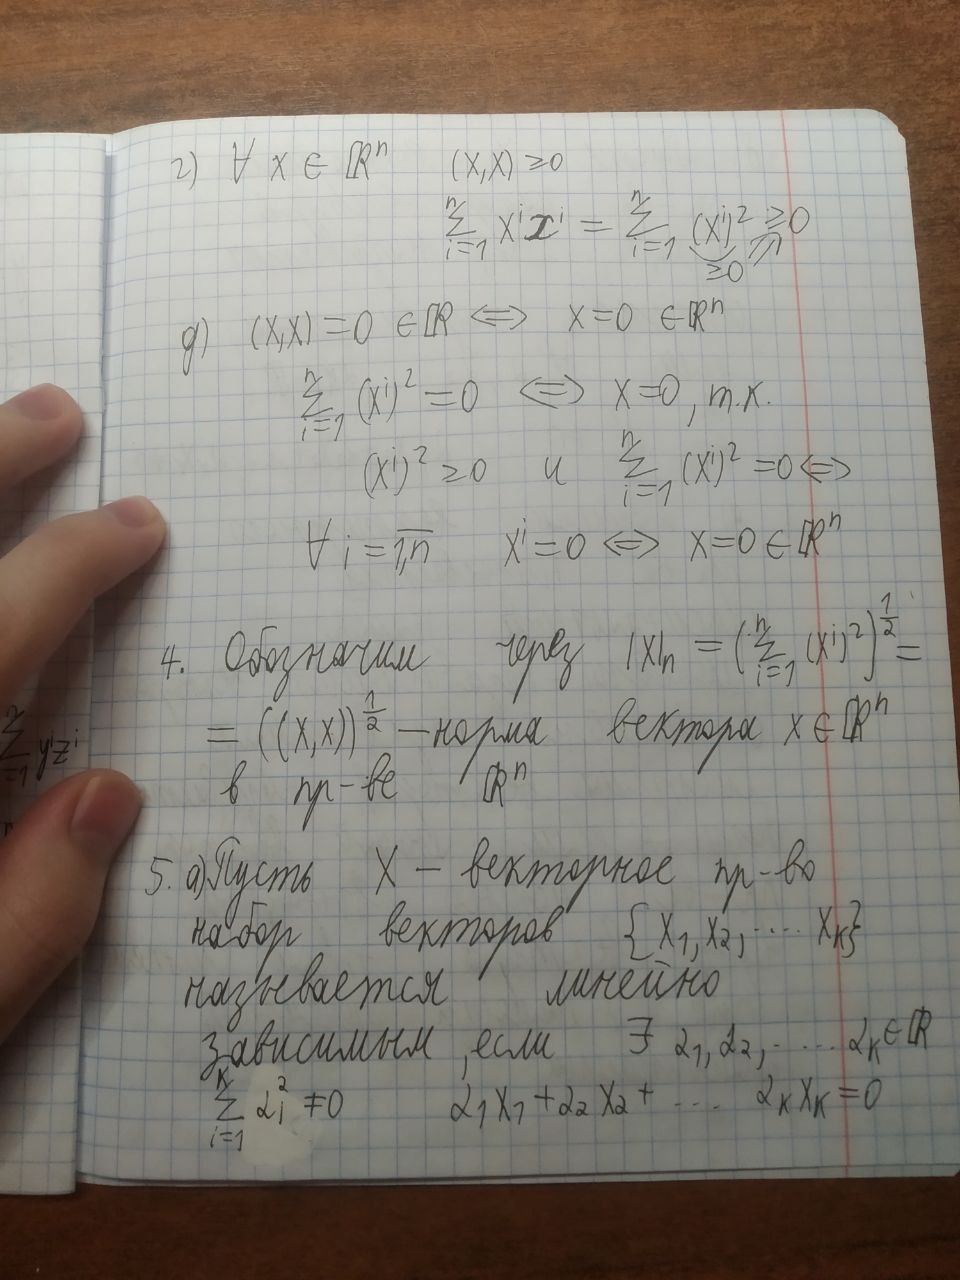 г) ∀ x ∈ ℝⁿ (x,x) ≥ 0
∑_{i=1}^{n} xⁱxⁱ = ∑_{i=1}^{n} (xⁱ)² ≥ 0
≥0
д) (x,x) = 0 ∈ ℝ ⇔ x = 0 ∈ ℝⁿ
∑_{i=1}^{n} (xⁱ)² = 0 ⇔ x = 0, т.к.
(xⁱ)² ≥ 0 и ∑_{i=1}^{n} (xⁱ)² = 0 ⇔
∀ i = 1,n̅ xⁱ = 0 ⇔ x = 0 ∈ ℝⁿ
4. Обозначим через |x|ₙ = (∑_{i=1}^{n} (xⁱ)²)^{1/2} =
= ((x,x))^{1/2} – норма вектора x ∈ ℝⁿ
в пр-ве ℝⁿ
∑_{i=1}^{n} yⁱzⁱ
5. а) Пусть X – векторное пр-во
набор векторов {x₁, x₂, .... xₖ}
называется линейно
зависимым, если ∃ α₁, α₂, .... αₖ ∈ ℝ
∑_{i=1}^{k} αᵢ² ≠ 0 α₁x₁ + α₂x₂ + ... αₖxₖ = 0